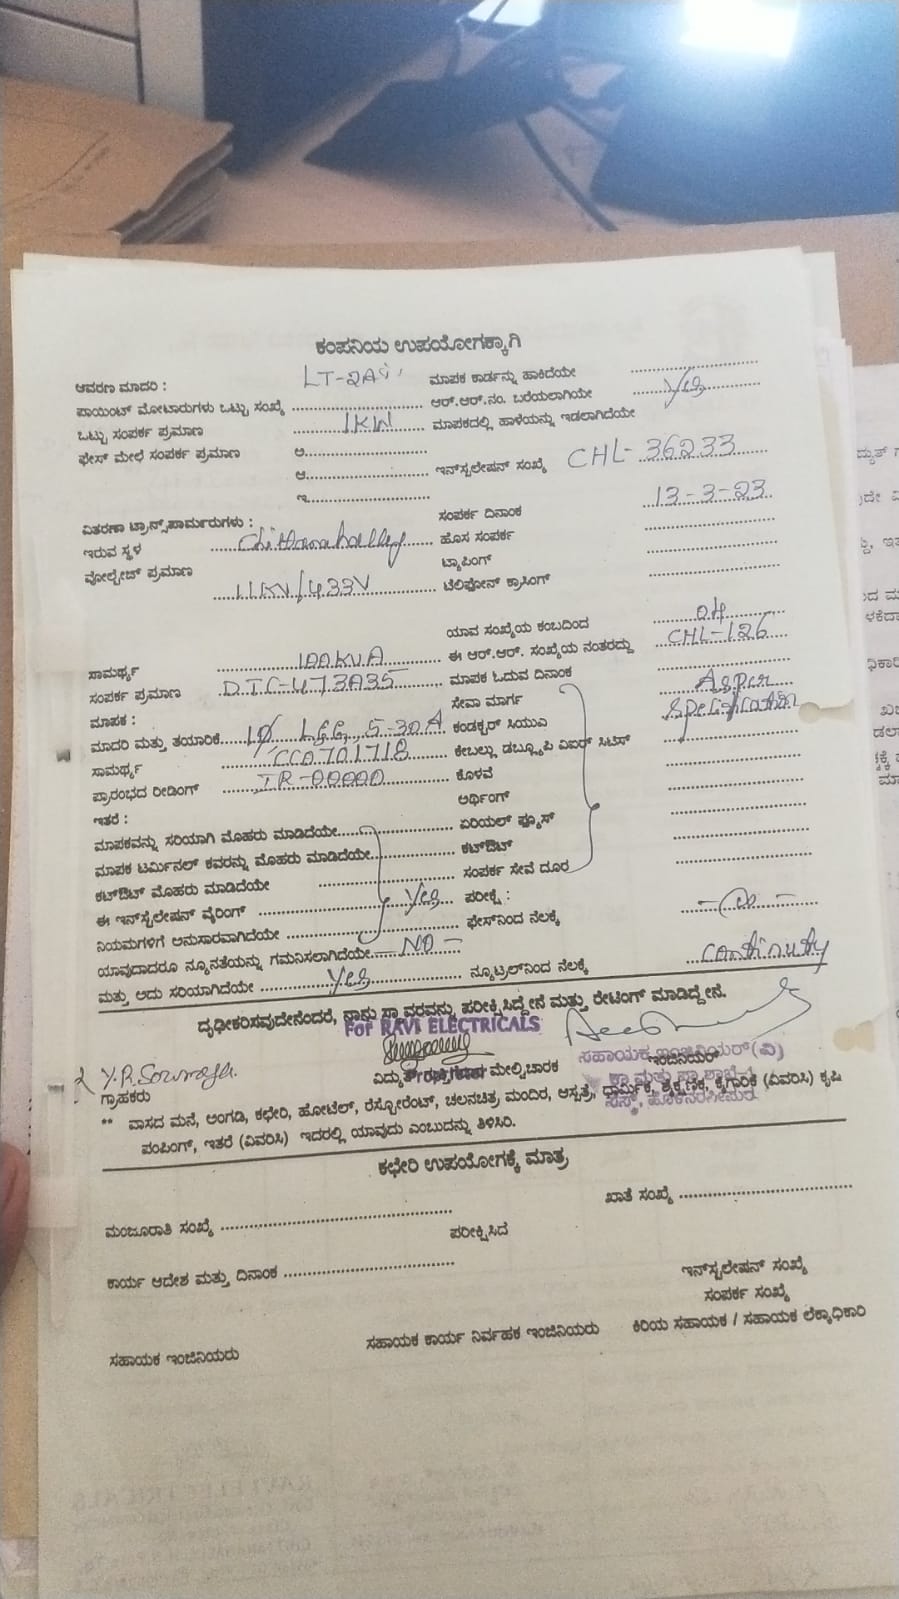 ಕಂಪನಿಯ ಉಪಯೋಗಕ್ಕಾಗಿ
ಆವರಣ ಮಾದರಿ : LT-2A ಮಾಪಕ ಕಾರ್ಡನ್ನು ಹಾಕಿದೆಯೇ
ಪಾಯಿಂಟ್ ಮೋಟಾರುಗಳು ಒಟ್ಟು ಸಂಖ್ಯೆ ಆರ್.ಆರ್.ನಂ. ಬರೆಯಲಾಗಿಯೇ Yes
ಒಟ್ಟು ಸಂಪರ್ಕ ಪ್ರಮಾಣ 1KW ಮಾಪಕದಲ್ಲಿ ಹಾಳೆಯನ್ನು ಇಡಲಾಗಿದೆಯೇ
ಫೇಸ್ ಮೇಲೆ ಸಂಪರ್ಕ ಪ್ರಮಾಣ ಅ.
ಆ. ಇನ್‌ಸ್ಟಲೇಷನ್ ಸಂಖ್ಯೆ CHL-36233
ಇ.
ಸಂಪರ್ಕ ದಿನಾಂಕ 13-3-23
ವಿತರಣಾ ಟ್ರಾನ್ಸ್‌ಫಾರ್ಮರುಗಳು :
ಇರುವ ಸ್ಥಳ Chittanahalley ಹೊಸ ಸಂಪರ್ಕ
ವೋಲ್ಟೇಜ್ ಪ್ರಮಾಣ ಟ್ಯಾಪಿಂಗ್
11KV/433V ಟೆಲಿಫೋನ್ ಕ್ರಾಸಿಂಗ್
ಯಾವ ಸಂಖ್ಯೆಯ ಕಂಬದಿಂದ 04
ಸಾಮರ್ಥ್ಯ 100KVA ಈ ಆರ್.ಆರ್. ಸಂಖ್ಯೆಯ ನಂತರದ್ದು CHL-126
ಸಂಪರ್ಕ ಪ್ರಮಾಣ DTC-473A35 ಮಾಪಕ ಓದುವ ದಿನಾಂಕ
ಮಾಪಕ : ಸೇವಾ ಮಾರ್ಗ As per
ಮಾದರಿ ಮತ್ತು ತಯಾರಿಕೆ 1Ø L&G, 5-30A ಕಂಡಕ್ಟರ್ ಸಿಯುವಿ Specification
ಸಾಮರ್ಥ್ಯ CC0701718 ಕೇಬಲ್ಲು ಡಬ್ಲ್ಯೂಪಿ ವಿಐಆರ್ ಸಿಟಿಸ್
ಪ್ರಾರಂಭದ ರೀಡಿಂಗ್ IR-00000 ಕೊಳವೆ
ಇತರೆ : ಅರ್ಥಿಂಗ್
ಮಾಪಕವನ್ನು ಸರಿಯಾಗಿ ಮೊಹರು ಮಾಡಿದೆಯೇ ಏರಿಯಲ್ ಫ್ಯೂಸ್
ಮಾಪಕ ಟರ್ಮಿನಲ್ ಕವರನ್ನು ಮೊಹರು ಮಾಡಿದೆಯೇ ಕಟ್‌ಔಟ್
ಕಟ್‌ಔಟ್ ಮೊಹರು ಮಾಡಿದೆಯೇ ಸಂಪರ್ಕ ಸೇವೆ ದೂರ
ಈ ಇನ್‌ಸ್ಟೆಲೇಷನ್ ವೈರಿಂಗ್ Yes ಪರೀಕ್ಷೆ :
ನಿಯಮಗಳಿಗೆ ಅನುಸಾರವಾಗಿದೆಯೇ ಫೇಸ್‌ನಿಂದ ನೆಲಕ್ಕೆ
ಯಾವುದಾದರೂ ನ್ಯೂನತೆಯನ್ನು ಗಮನಿಸಲಾಗಿದೆಯೇ NO
ಮತ್ತು ಅದು ಸರಿಯಾಗಿದೆಯೇ Yes ನ್ಯೂಟ್ರಲ್‌ನಿಂದ ನೆಲಕ್ಕೆ continuty
ದೃಢೀಕರಿಸುವುದೇನೆಂದರೆ, ನಾನು ಸ್ಥಾವರವನ್ನು ಪರೀಕ್ಷಿಸಿದ್ದೇನೆ ಮತ್ತು ರೇಟಿಂಗ್ ಮಾಡಿದ್ದೇನೆ.
For RAVI ELECTRICALS
Proprietor
ಸಹಾಯಕ ಇಂಜಿನಿಯರ್(ವಿ)
ಗ್ರಾಹಕರು ವಿದ್ಯುತ್ ಮೇಲ್ವಿಚಾರಕ ಇಂಜಿನಿಯರ್
** ವಾಸದ ಮನೆ, ಅಂಗಡಿ, ಕಛೇರಿ, ಹೋಟೆಲ್, ರೆಸ್ಟೋರೆಂಟ್, ಚಲನಚಿತ್ರ ಮಂದಿರ, ಆಸ್ಪತ್ರೆ, ಧಾರ್ಮಿಕ, ಶೈಕ್ಷಣಿಕ, ಕೈಗಾರಿಕೆ (ವಿವರಿಸಿ) ಕೃಷಿ
ಪಂಪಿಂಗ್, ಇತರೆ (ವಿವರಿಸಿ) ಇದರಲ್ಲಿ ಯಾವುದು ಎಂಬುದನ್ನು ತಿಳಿಸಿರಿ.
ಕಛೇರಿ ಉಪಯೋಗಕ್ಕೆ ಮಾತ್ರ
ಮಂಜೂರಾತಿ ಸಂಖ್ಯೆ ಖಾತೆ ಸಂಖ್ಯೆ
ಪರೀಕ್ಷಿಸಿದ
ಕಾರ್ಯ ಆದೇಶ ಮತ್ತು ದಿನಾಂಕ
ಇನ್‌ಸ್ಟಲೇಷನ್ ಸಂಖ್ಯೆ
ಸಂಪರ್ಕ ಸಂಖ್ಯೆ
ಸಹಾಯಕ ಇಂಜಿನಿಯರು ಸಹಾಯಕ ಕಾರ್ಯ ನಿರ್ವಾಹಕ ಇಂಜಿನಿಯರು ಕಿರಿಯ ಸಹಾಯಕ / ಸಹಾಯಕ ಲೆಕ್ಕಾಧಿಕಾರಿ